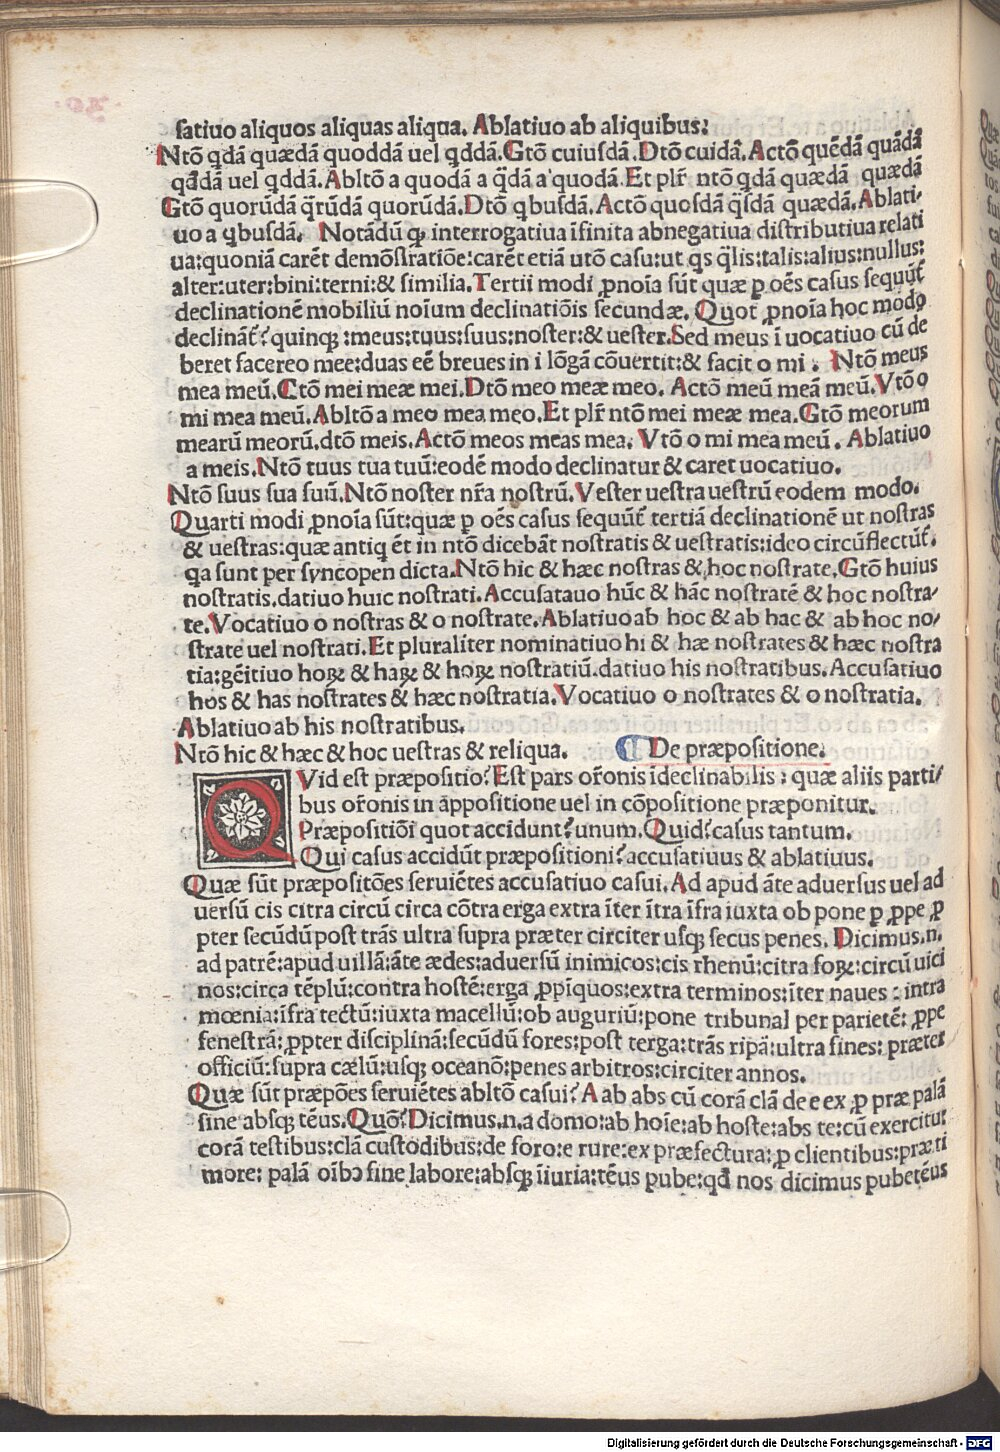 ſatiuo aliquos aliquas aliqua. Ablatiuo ab aliquibus:
Ntō qdā quædā quoddā uel qddā. Gtō cuiuſdā. Dtō cuidā. Actō quēdā quādā
qdā uel qddā. Abltō a quodā a q̄dā a quodā. Et plr̄ ntō qdā quædā quædā
Gtō quorūdā q̄rūdā quorūdā. Dtō qbuſdā. Actō quoſdā q̄ſdā quædā. Ablati⸗
uo a qbuſdā. Notādū ꝙ interrogatiua īfinita abnegatiua diſtributiua relati
ua:quoniā carēt demōſtratiōe:carēt etiā utō caſu:ut qs q̄lis:talis:alius:nullus:
alter:uter:bini:terni:& ſimilia. Tertii modi ꝓnoīa ſūt quæ ꝑ oēs caſus ſequūt̄
declinationē mobiliū noīum declinatiōis ſecundæ. Quot ꝓnoīa hoc modo
declināt̄? quinqꝫ :meus:tuus:ſuus:noſter:& ueſter. Sed meus ī uocatiuo cū de
beret facere o mee:duas eē breues in i lōgā cōuertit:& facit o mi . Ntō meus
mea meū. Gtō mei meæ mei. Dtō meo meæ meo. Actō meū meā meū. Vtō o
mi mea meū. Abltō a meo mea meo. Et plr̄ ntō mei meæ mea. Gtō meorum
mearū meorū. dtō meis. Actō meos meas mea. Vtō o mi mea meū. Ablatiuo
a meis. Ntō tuus tua tuū:eodē modo declinatur & caret uocatiuo.
Ntō ſuus ſua ſuū. Ntō noſter nr̄a noſtrū. Veſter ueſtra ueſtrū eodem modo.
Quarti modi ꝓnoīa ſūt:quæ ꝑ oēs caſus ſequūt̄ tertiā declinationē ut noſtras
& ueſtras:quæ antiq ēt in ntō dicebāt noſtratis & ueſtratis:ideo circūflectūt̄.
qa ſunt per ſyncopen dicta. Ntō hic & hæc noſtras & hoc noſtrate. Gtō huius
noſtratis. datiuo huic noſtrati. Accuſatauo hūc & hāc noſtratē & hoc noſtra⸗
te. Vocatiuo o noſtras & o noſtrate. Ablatiuo ab hoc & ab hac & ab hoc no⸗
ſtrate uel noſtrati. Et pluraliter nominatiuo hi & hæ noſtrates & hæc noſtra
tia:gēitiuo hoꝝ & haꝝ & hoꝝ noſtratiū. datiuo his noſtratibus. Accuſatiuo
hos & has noſtrates & hæc noſtratia. Vocatiuo o noſtrates & o noſtratia.
Ablatiuo ab his noſtratibus.
Ntō hic & hæc & hoc ueſtras & reliqua. ¶ De præpoſitione.
QVid eſt præpoſitio? Eſt pars or̄onis īdeclinabilis : quæ aliis parti⸗
bus or̄onis in āppoſitione uel in cōpoſitione præponitur.
Præpoſitiōi quot accidunt? unum. Quid? caſus tantum.
Qui caſus accidūt præpoſitioni? accuſatiuus & ablatiuus.
Quæ ſūt præpoſitōes ſeruiētes accuſatiuo caſui. Ad apud āte aduerſus uel ad
uerſū cis citra circū circa cōtra erga extra īter ītra īfra iuxta ob pone ꝑ ꝓpe ꝓ
pter ſecūdū poſt trās ultra ſupra præter circiter uſqꝫ ſecus penes. Dicimus.n.
ad patrē:apud uillā:āte ædes:aduerſū inimicos:cis rhenū:citra foꝝ:circū uici
nos:circa tēplū:contra hoſtē:erga ꝓpīquos:extra terminos:īter naues : intra
mœnia:īfra tectū:iuxta macellū:ob auguriū:pone tribunal per parietē: ꝓpe
feneſtrā: ꝓpter diſciplinā:ſecūdū fores:poſt terga:trās ripā:ultra fines: præter
officiū:ſupra cælū:uſqꝫ oceanō:penes arbitros:circiter annos.
Quæ ſūt præpōes ſeruiētes abltō caſui? A ab abs cū corā clā de e ex ꝓ præ palā
ſine abſqꝫ tēus. Quō? Dicimus.n. a domo:ab hoīe:ab hoſte:abs te:cū exercitu:
corā teſtibus:clā cuſtodibus:de foro:e rure:ex præfectura:ꝓ clientibus:præ ti
more: palā oībꝰ ſine labore:abſqꝫ īiuria:tēus pube:qd nos dicimus pubetēus
Digitalisierung gefördert durch die Deutsche Forschungsgemeinschaft - DFG